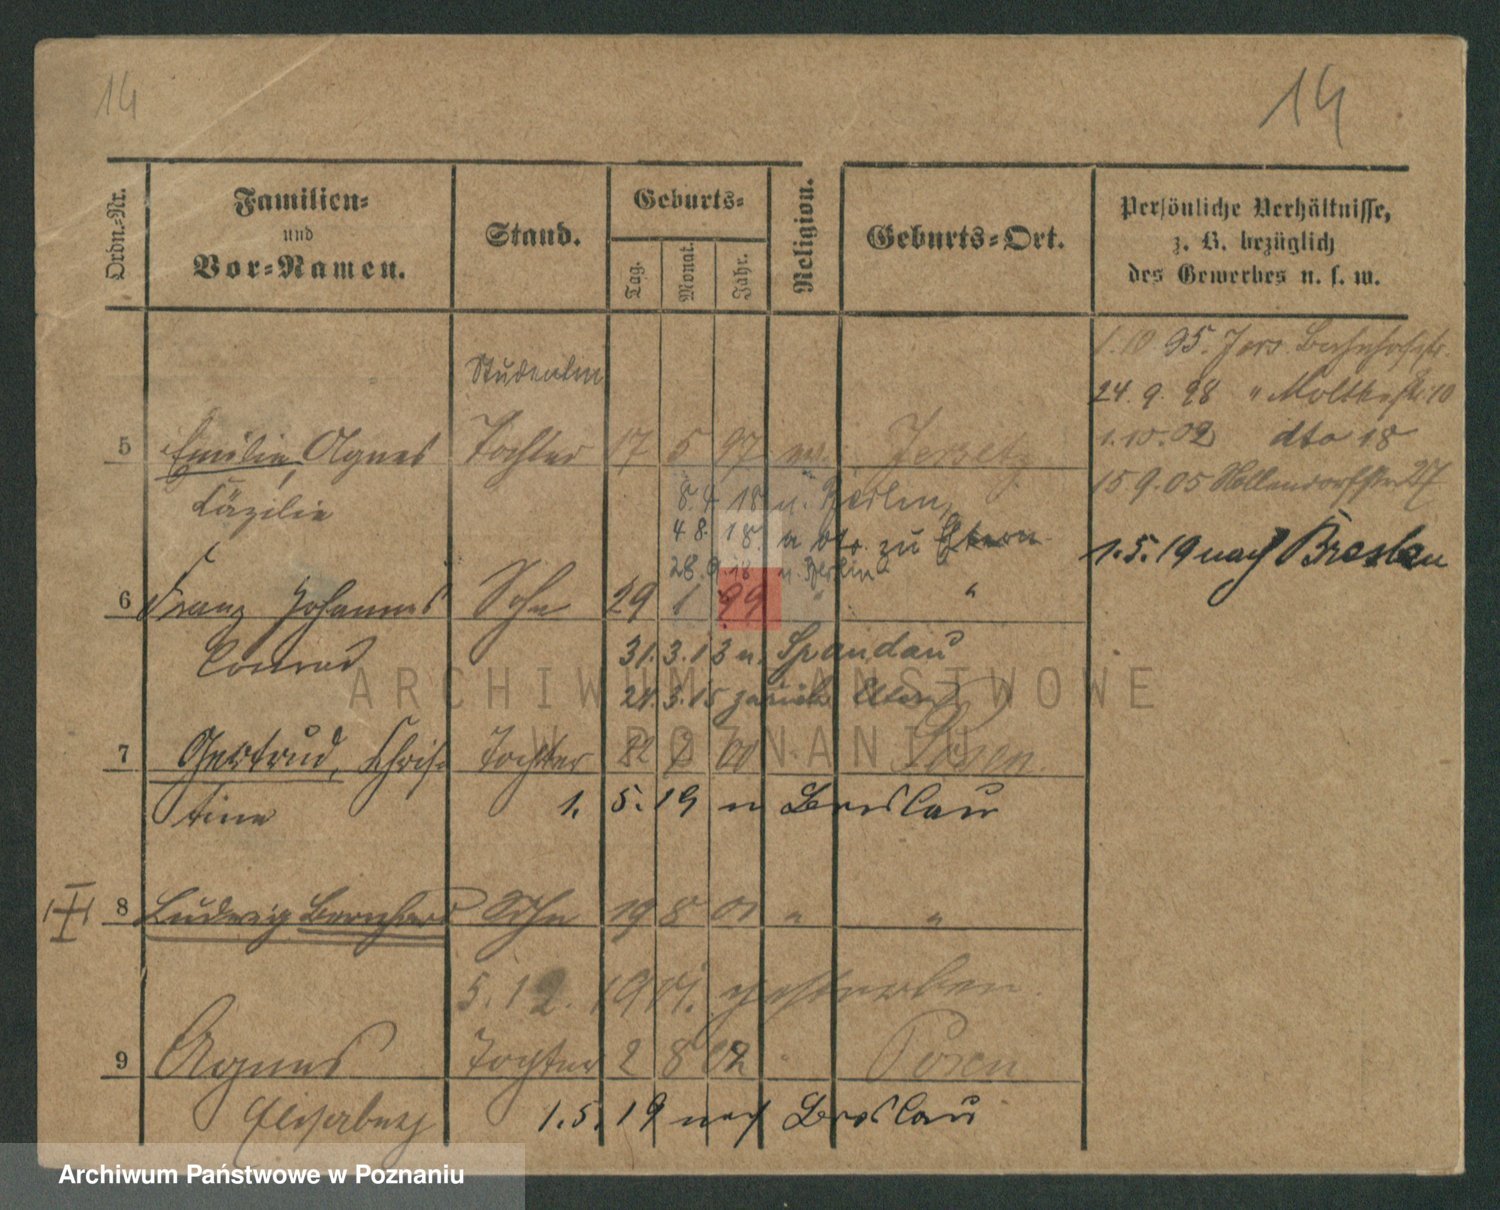 14
14
Ordn.-Nr.
Familien-
und
Vor-Namen.
Stand.
Geburts-
Tag.
Monat.
Jahr.
Religion.
Geburts-Ort.
Persönliche Verhältnisse,
z. B. bezüglich
des Gewerbes u. s. w.
1.10 95. Jers. Bahnhofstr.
Studentin
24. 9. 98 " Moltkestr. 10
1.10.02 dto 18
5 Emilie, Agnes Tochter 17 5 97 Jersetz
15 9.05 Hollendorfstr 27
Cäzilie
8.4 18 n. Berlin,
4 8. 18. zu Eltern
1.5.19 nach Breslau
28.9.18 n. Berlin
6 Franz Johannes Sohn 29 1 99 " "
Conrad
31.3.13 n. Spandau
21.3.15 zurück Eltern
7 Gertrud, Chris- Tochter 22 00 " Posen.
tine
1. 5.19 n Breslau
8 Ludwig Bernhard Sohn 19 8 01 " "
5.12.1911. gestorben.
9 Agnes Tochter 2 8 02 " Posen
Elisabeth
1.5.19 nach Breslau
ARCHIWUM PAŃSTWOWE
W POZNANIU
Archiwum Państwowe w Poznaniu